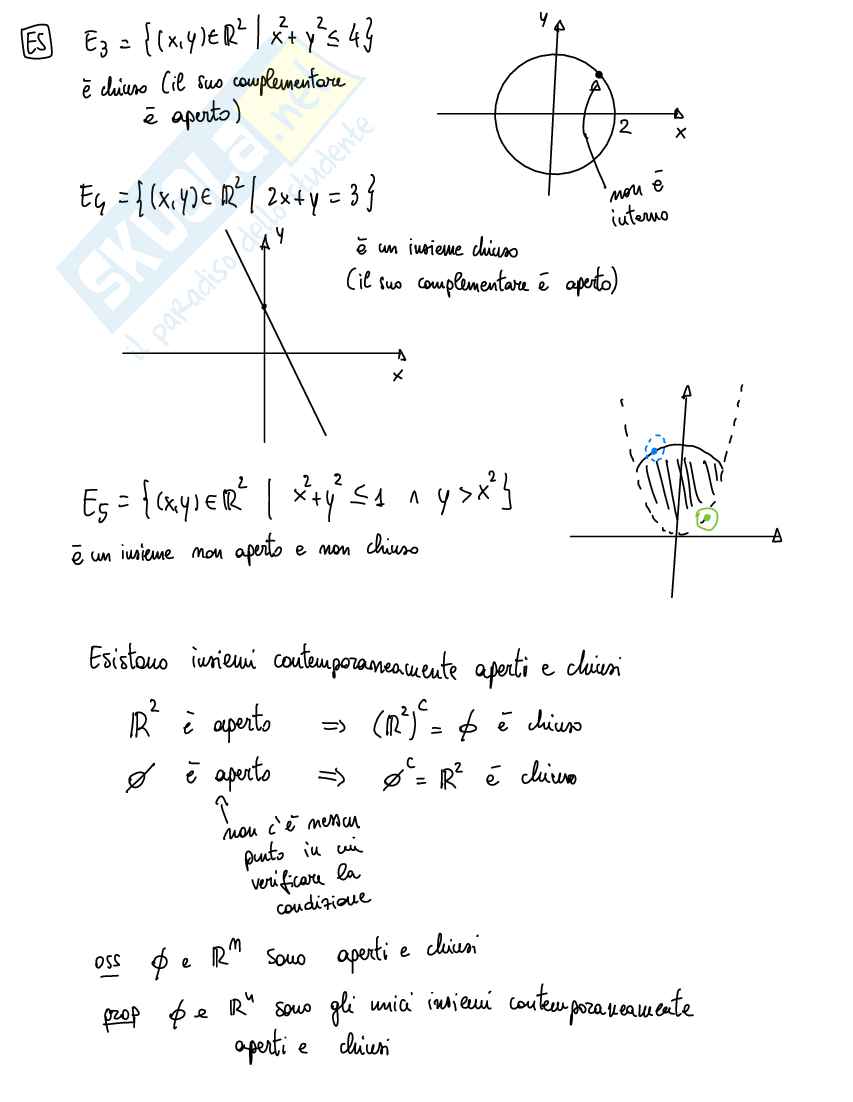 ES E₃ = {(x,y)∈ℝ² | x²+y² ≤ 4}
ē chiuso (il suo complementare
ē aperto)
y
2
x
non ē
interno
E₄ = {(x,y)∈ℝ² | 2x+y = 3}
y
x
ē un insieme chiuso
(il suo complementare ē aperto)
E₅ = {(x,y)∈ℝ² | x²+y² ≤ 1 ∧ y > x²}
ē un insieme non aperto e non chiuso
Esistono insiemi contemporaneamente aperti e chiusi
ℝ² ē aperto ⇒ (ℝ²)ᶜ = ϕ ē chiuso
∅ ē aperto ⇒ ∅ᶜ = ℝ² ē chiuso
non c'ē nessun
punto in cui
verificare la
condizione
oss ϕ e ℝⁿ sono aperti e chiusi
prop ϕ e ℝⁿ sono gli unici insiemi contemporaneamente
aperti e chiusi
SKUOLA.net
il paradiso dello studente